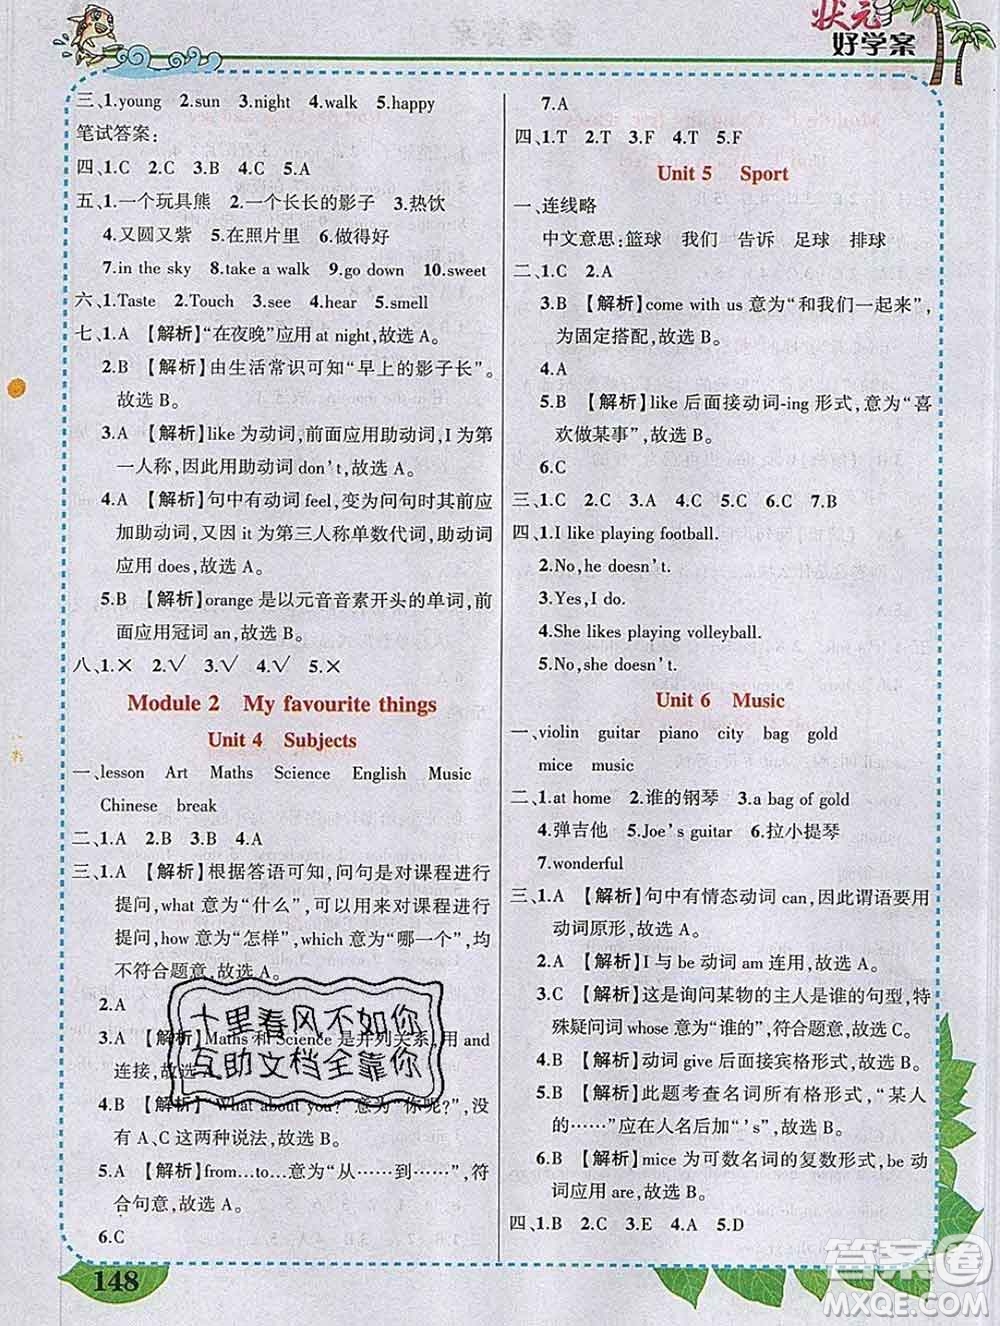 状元
好学案
三、1.young 2.sun 3.night 4.walk 5.happy
笔试答案:
四、1.C 2.C 3.B 4.C 5.A
五、1.一个玩具熊 2.一个长长的影子 3.热饮
4.又圆又紫 5.在照片里 6.做得好
7.in the sky 8.take a walk 9.go down 10.sweet
六、1.Taste 2.Touch 3.see 4.hear 5.smell
七、1.A 【解析】“在夜晚”应用 at night,故选 A。
2.B 【解析】由生活常识可知“早上的影子长”。
故选 B。
3.A 【解析】like 为动词,前面应用助动词,I 为第
一人称,因此用助动词 don't,故选 A。
4.A 【解析】句中有动词 feel,变为问句时其前应
加助动词,又因 it 为第三人称单数代词,助动词
应用 does,故选 A。
5.B 【解析】orange 是以元音音素开头的单词,前
面应用冠词 an,故选 B。
八、1.× 2.√ 3.√ 4.√ 5.×
Module 2 My favourite things
Unit 4 Subjects
一、lesson Art Maths Science English Music
Chinese break
二、1.A 2.B 3.B 4.A
三、1.A 【解析】根据答语可知,问句是对课程进行
提问,what 意为“什么”,可以用来对课程进行
提问,how 意为“怎样”,which 意为“哪一个”,均
不符合题意,故选 A。
2.A
3.A 【解析】Maths 和 Science 是并列关系,用 and
连接,故选 A。
4.B 【解析】What about you? 意为“你呢?”,没
有 A、C 这两种说法,故选 B。
5.A 【解析】from…to…意为“从……到……”,符
合句意,故选 A。
6.C
148
7.A
四、1.T 2.T 3.F 4.T 5.F
Unit 5 Sport
一、连线略
中文意思:篮球 我们 告诉 足球 排球
二、1.C 2.A
3.B 【解析】come with us 意为“和我们一起来”,
为固定搭配,故选 B。
4.A
5.B 【解析】like 后面接动词-ing 形式,意为“喜
欢做某事”,故选 B。
6.C
三、1.C 2.C 3.A 4.C 5.C 6.C 7.B
四、1.I like playing football.
2.No,he doesn't.
3.Yes,I do.
4.She likes playing volleyball.
5.No,she doesn't.
Unit 6 Music
一、violin guitar piano city bag gold
mice music
二、1.at home 2.谁的钢琴 3.a bag of gold
4.弹吉他 5.Joe's guitar 6.拉小提琴
7.wonderful
三、1.A 【解析】句中有情态动词 can,因此谓语要用
动词原形,故选 A。
2.A 【解析】I 与 be 动词 am 连用,故选 A。
3.C 【解析】这是询问某物的主人是谁的句型,特
殊疑问词 whose 意为“谁的”,符合题意,故选 C。
4.B 【解析】动词 give 后面接宾格形式,故选 B。
5.B 【解析】此题考查名词所有格形式,“某人
的……”应在人名后加“'s”,故选 B。
6.B 【解析】mice 为可数名词的复数形式,be 动
词应用 are,故选 B。
四、1.B 2.C 3.E 4.A 5.D
十里春风不如你
互助文档全靠你
答案圈
MXQE.COM